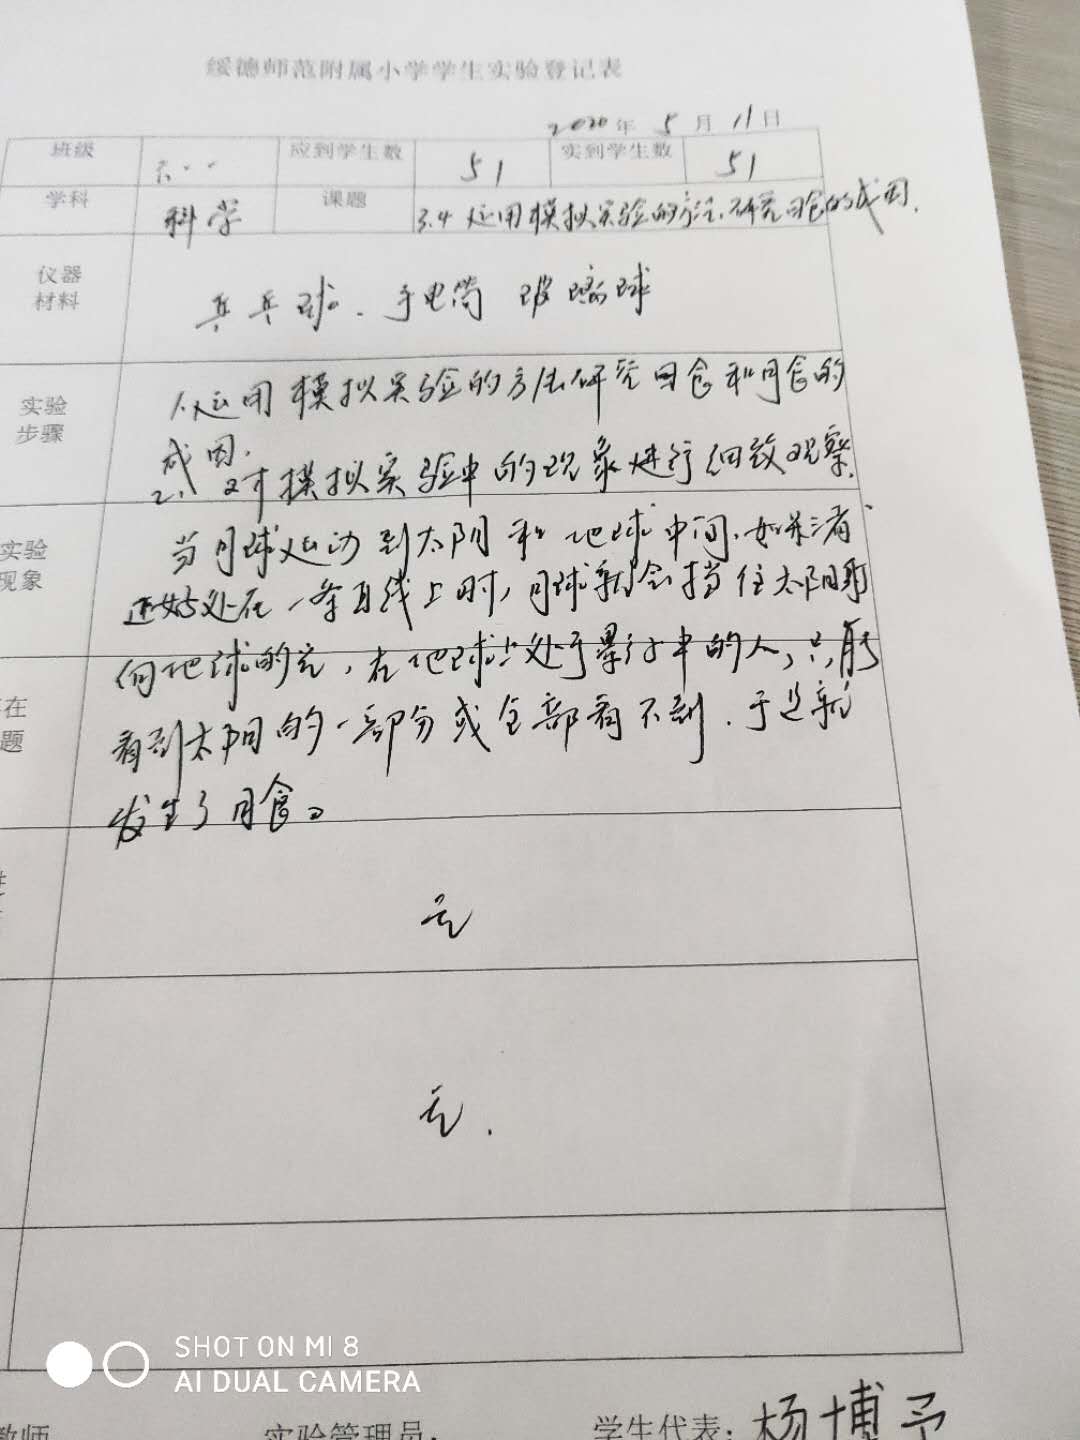 绥德师范附属小学学生实验登记表
2020年 5月 11日
班级 六.. 应到学生数 51 实到学生数 51
学科 科学 课题 3.4 运用模拟实验的方法.研究日食的成因.
仪器
材料
乒乓球. 手电筒 玻璃球
实验
步骤
1.运用模拟实验的方法研究日食和月食的
成因.
2、对模拟实验中的现象进行细致观察.
实验
现象
当月球运动到太阳和地球中间.如果三者
正好处在一条直线上时,月球就会挡住太阳射
向地球的光,在地球上处于影子中的人,只能
在
题
看到太阳的一部分或全部看不到.于是就
发生了日食。
无
无.
SHOT ON MI 8
AI DUAL CAMERA
教师 实验管理员: 学生代表: 杨博予